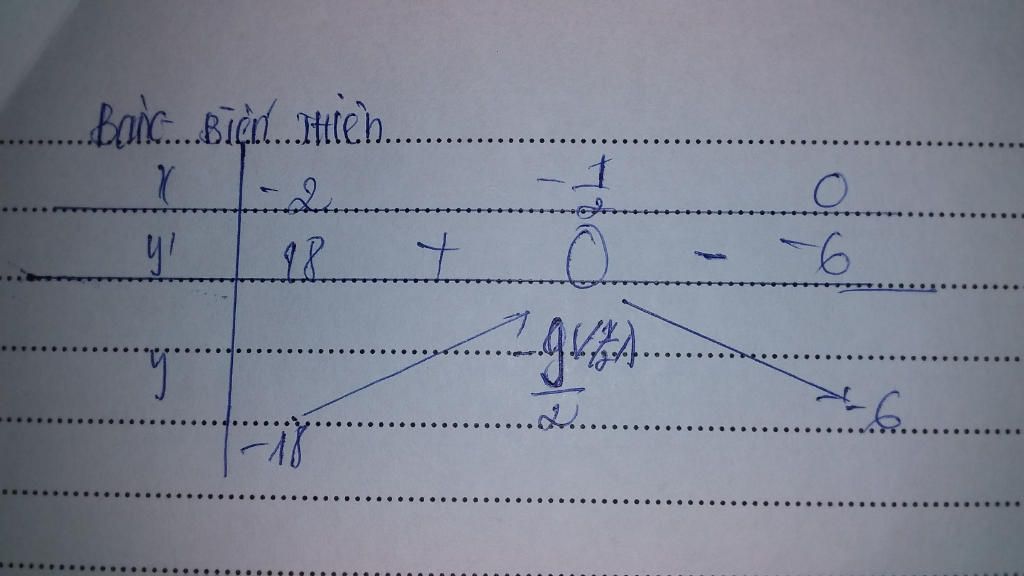 Bảng Biến Thiên
x -2 -1/2 0
y' 18 + 0 - -6
y -9/2
-6
-18